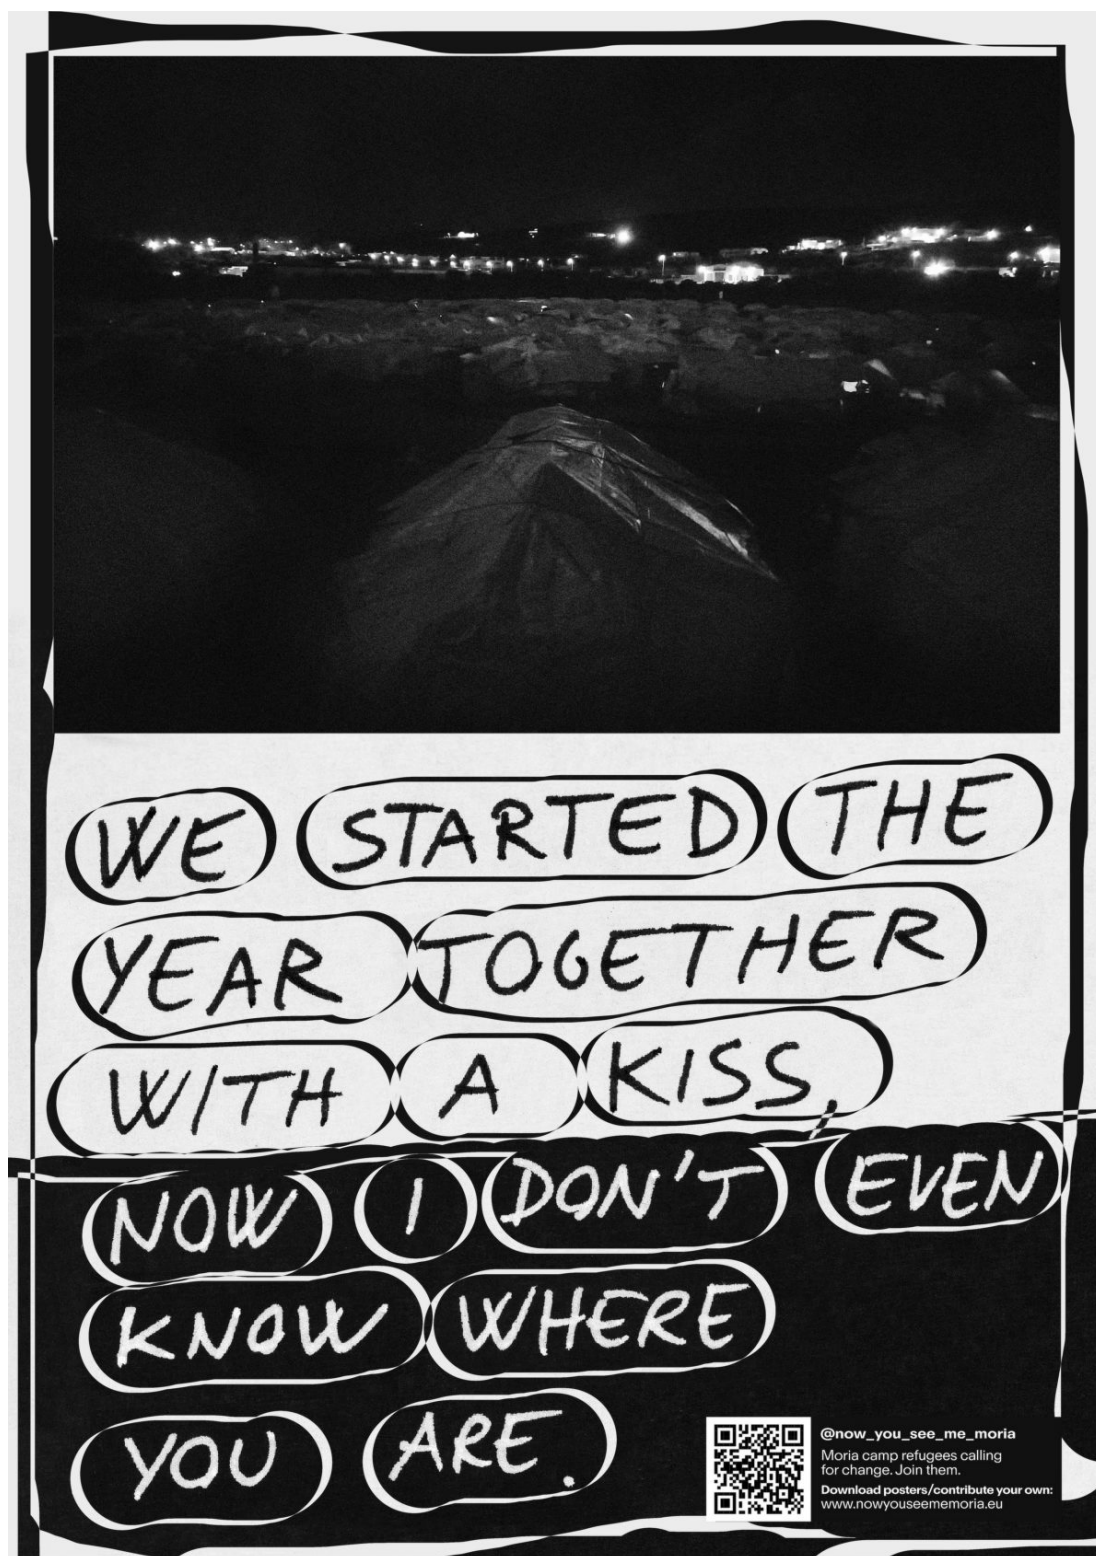 WE STARTED THE
YEAR TOGETHER
WITH A KISS,
NOW I DON'T EVEN
KNOW WHERE
YOU ARE.
@now_you_see_me_moria
Moria camp refugees calling
for change. Join them.
Download posters/contribute your own:
www.nowyouseememoria.eu